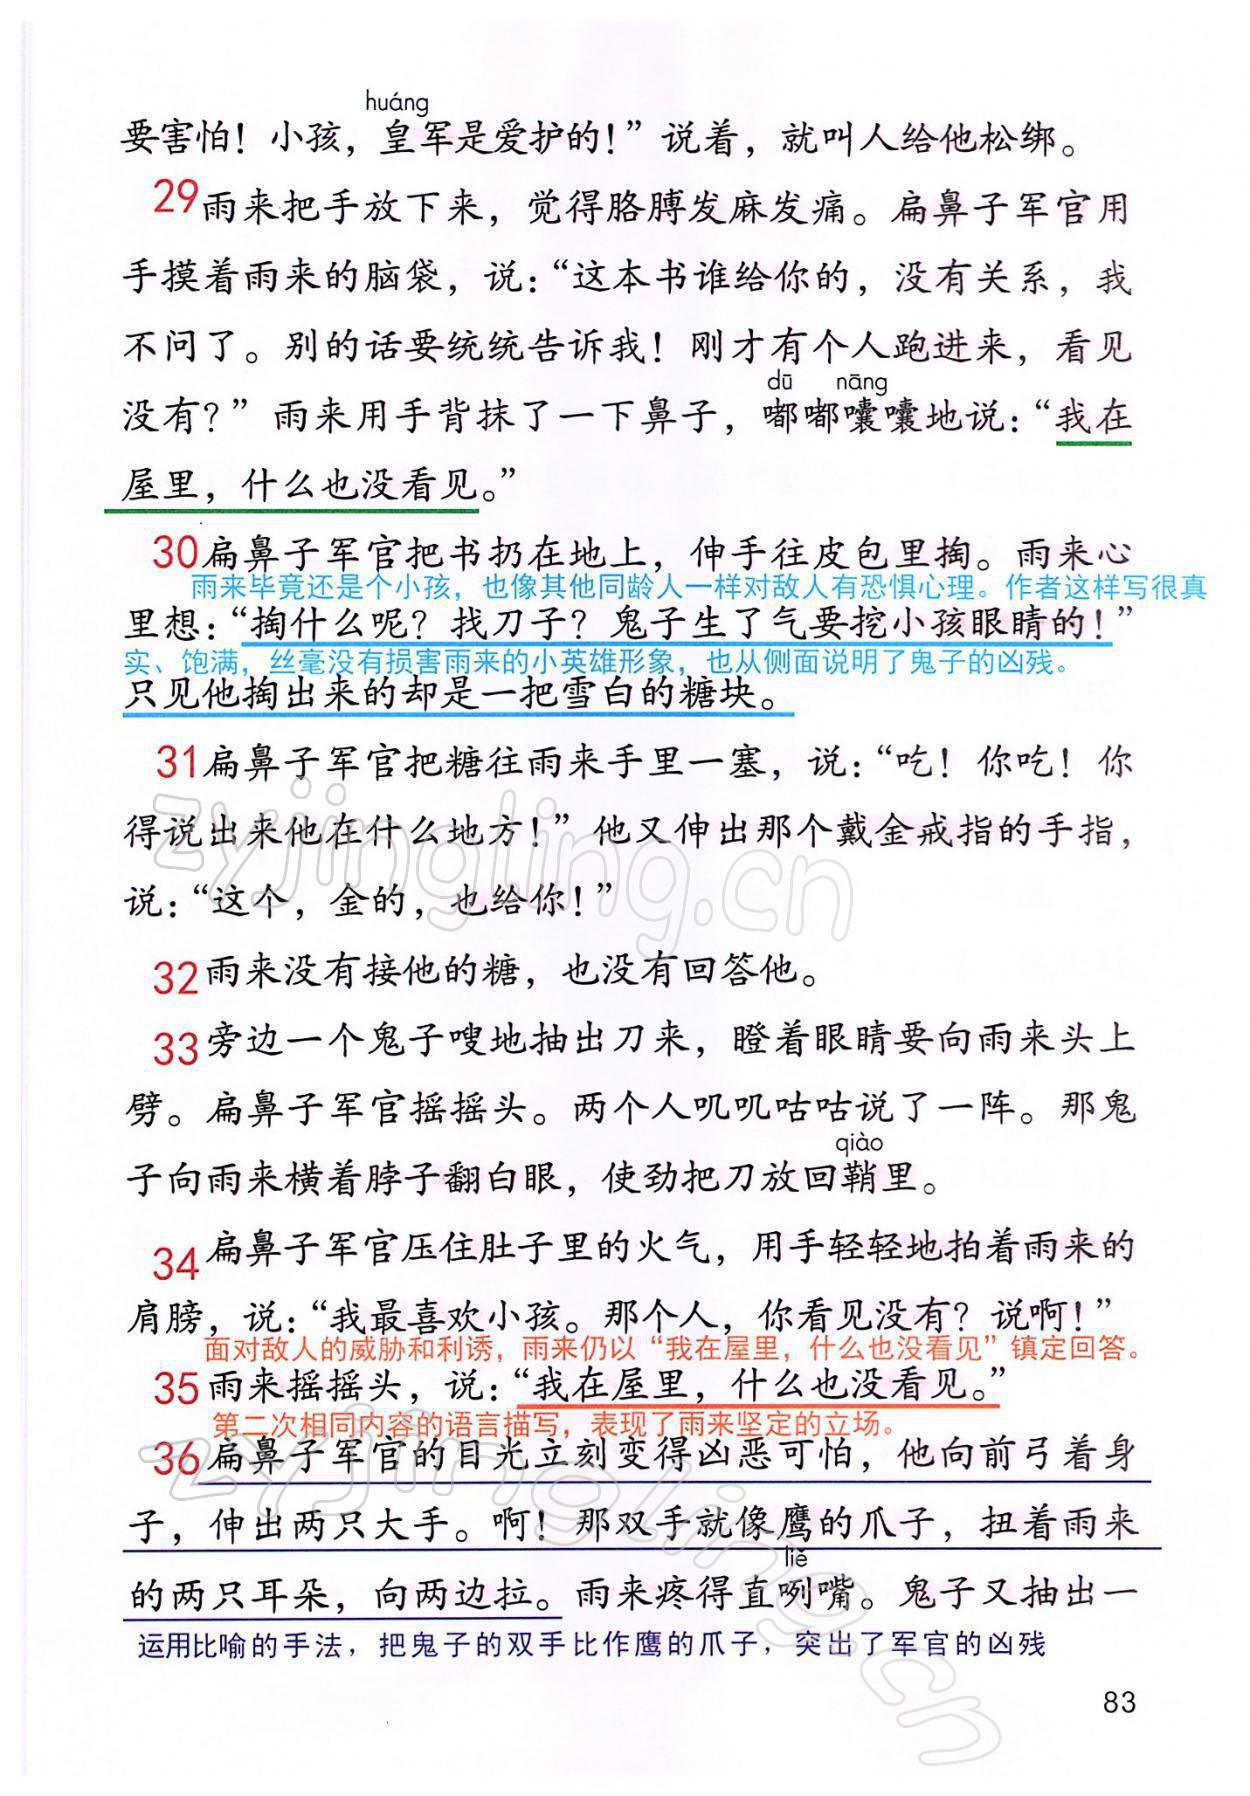 huáng
要害怕！小孩，皇军是爱护的！”说着，就叫人给他松绑。
29雨来把手放下来，觉得胳膊发麻发痛。扁鼻子军官用
手摸着雨来的脑袋，说：“这本书谁给你的，没有关系，我
不问了。别的话要统统告诉我！刚才有个人跑进来，看见
dū nāng
没有？”雨来用手背抹了一下鼻子，嘟嘟囔囔地说：“我在
屋里，什么也没看见。”
30扁鼻子军官把书扔在地上，伸手往皮包里掏。雨来心
雨来毕竟还是个小孩，也像其他同龄人一样对敌人有恐惧心理。作者这样写很真
里想：“掏什么呢？找刀子？鬼子生了气要挖小孩眼睛的！”
实、饱满，丝毫没有损害雨来的小英雄形象，也从侧面说明了鬼子的凶残。
只见他掏出来的却是一把雪白的糖块。
31扁鼻子军官把糖往雨来手里一塞，说：“吃！你吃！你
得说出来他在什么地方！”他又伸出那个戴金戒指的手指，
说：“这个，金的，也给你！”
32雨来没有接他的糖，也没有回答他。
33旁边一个鬼子嗖地抽出刀来，瞪着眼睛要向雨来头上
劈。扁鼻子军官摇摇头。两个人叽叽咕咕说了一阵。那鬼
qiào
子向雨来横着脖子翻白眼，使劲把刀放回鞘里。
34扁鼻子军官压住肚子里的火气，用手轻轻地拍着雨来的
肩膀，说：“我最喜欢小孩。那个人，你看见没有？说啊！”
面对敌人的威胁和利诱，雨来仍以“我在屋里，什么也没看见”镇定回答。
35雨来摇摇头，说：“我在屋里，什么也没看见。”
第二次相同内容的语言描写，表现了雨来坚定的立场。
36扁鼻子军官的目光立刻变得凶恶可怕，他向前弓着身
子，伸出两只大手。啊！那双手就像鹰的爪子，扭着雨来
liě
的两只耳朵，向两边拉。雨来疼得直咧嘴。鬼子又抽出一
运用比喻的手法，把鬼子的双手比作鹰的爪子，突出了军官的凶残
83
zyjingling.cn
zyjingling.cn